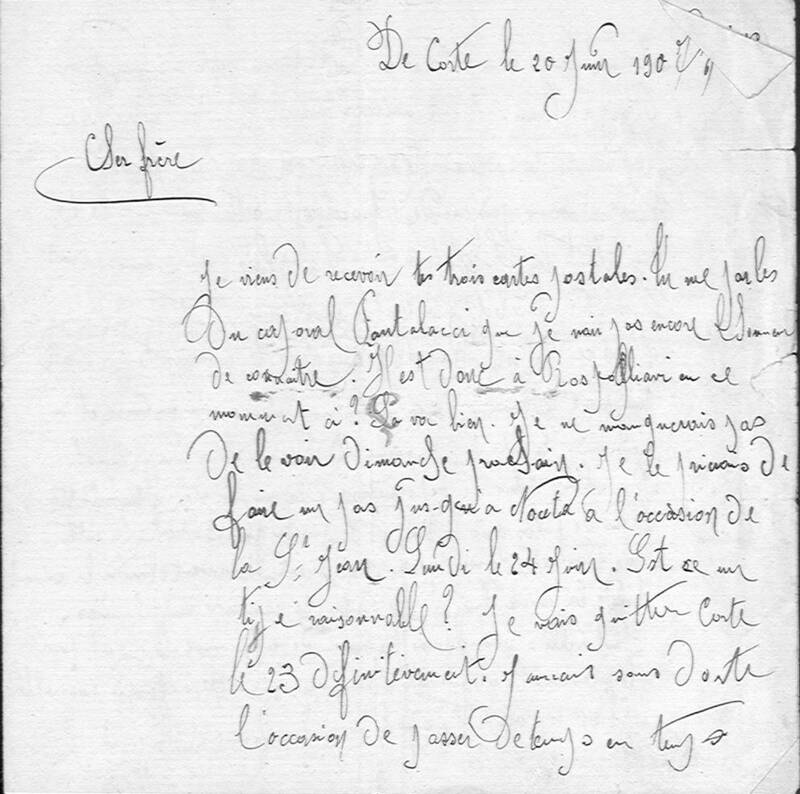 De Corte le 20 Juin 1907
Cher frère
Je viens de recevoir tes trois cartes postales. Tu me parles
Du caporal Pantalacci que je n'ai pas encore l'honneur
de connaître. Il est donc à Prospogliavi en ce
momment ci? Ça va bien. Je ne manquerais pas
De le voir dimanche prochain. Je le prierais de
faire un pas jus-qu'a Noceta à l'occasion de
la St Jean. Lundi le 24 Juin. Est ce un
type raisonnable? Je vais quitter Corte
le 23 définitèvement. J'aurais sans doute
l'occasion de passer de temps en temps